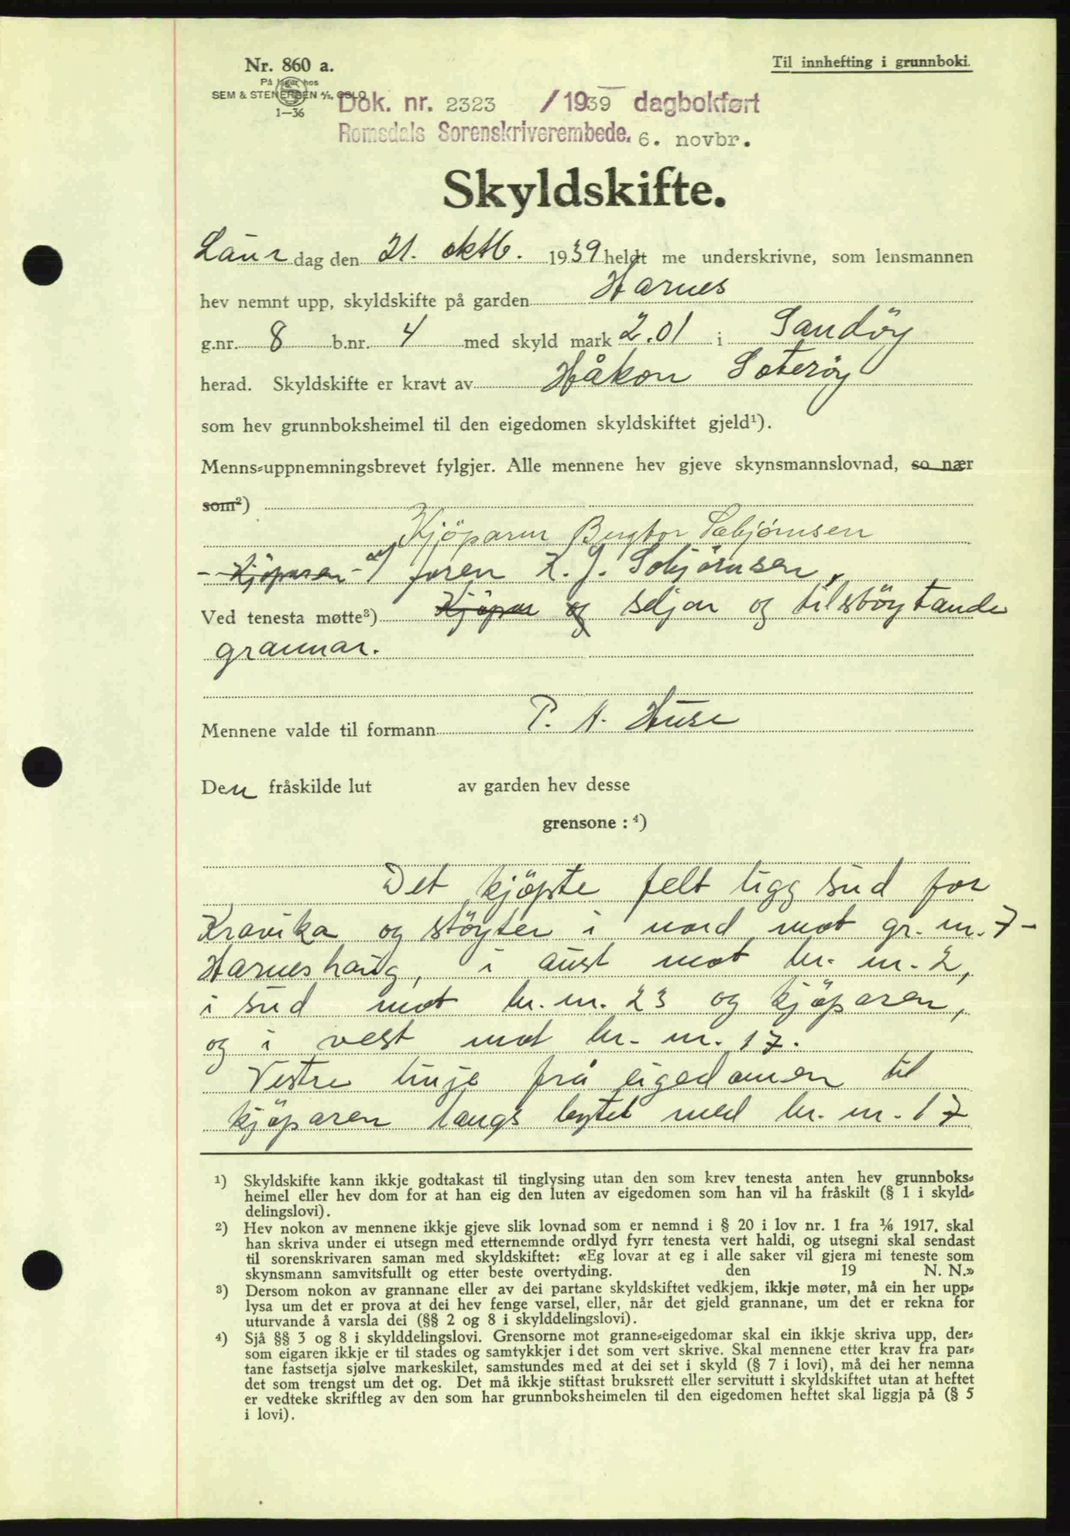 Nr. 860 a.
Til innhefting i grunnboki.
På lager hos
SEM & STENERSEN A/S, OSLO
1—36
Dok. nr. 2323 /1939 dagbokført
Romsdals Sorenskriverembede. 6. novbr.
Skyldskifte.
Laur dag den 21. oktb. 1939 heldt me underskrivne, som lensmannen
hev nemnt upp, skyldskifte på garden Harnes
g.nr. 8 b.nr. 4 med skyld mark 2.01 i Sandöy
herad. Skyldskifte er kravt av Håkon Soteröy
som hev grunnboksheimel til den eigedomen skyldskiftet gjeld¹).
Menns-uppnemningsbrevet fylgjer. Alle mennene hev gjeve skynsmannslovnad, so nær
som²)
Kjöparen
Kjöparen foren K. J.
Ved tenesta møtte³) Kjöpar og seljar og tilstöytande
grannar.
Mennene valde til formann P. A. Huse
Den fråskilde lut av garden hev desse
grensone : ⁴)
Det kjöpte felt ligg sud for
Kravika og stöyter i nord mot gr. m. 7-
Harneshaug, i aust mot br. m. 2,
i sud mot br. m. 23 og kjöparen,
og i vest mot br. m. 17.
Vestre linje frå eigedomen til
kjöparen langs bytet med br. m. 17
¹) Skyldskifte kann ikkje godtakast til tinglysing utan den som krev tenesta anten hev grunnboks-
heimel eller hev dom for at han eig den luten av eigedomen som han vil ha fråskilt (§ 1 i skyld-
delingslovi).
²) Hev nokon av mennene ikkje gjeve slik lovnad som er nemnd i § 20 i lov nr. 1 fra ⅛ 1917, skal
han skriva under ei utsegn med etternemnde ordlyd fyrr tenesta vert haldi, og utsegni skal sendast
til sorenskrivaren saman med skyldskiftet: «Eg lovar at eg i alle saker vil gjera mi teneste som
skynsmann samvitsfullt og etter beste overtyding. den 19 N. N.»
³) Dersom nokon av grannane eller av dei partane skyldskiftet vedkjem, ikkje møter, må ein her upp-
lysa um det er prova at dei hev fenge varsel, eller, når det gjeld grannane, um det er rekna for
uturvande å varsla dei (§§ 2 og 8 i skylddelingslovi).
⁴) Sjå §§ 3 og 8 i skylddelingslovi. Grensorne mot granne-eigedomar skal ein ikkje skriva upp, der-
som eigaren ikkje er til stades og samtykkjer i det som vert skrive. Skal mennene etter krav fra par-
tane fastsetja sjølve markeskilet, samstundes med at dei set i skyld (§ 7 i lovi), må dei her nemna
det som trengst um det og. Det må ikkje stiftast bruksrett eller servitutt i skyldskiftet utan at heftet
er vedteke skriftleg av den som har grunnboksheimelen til den eigedomen heftet skal liggja på (§ 5
i lovi).